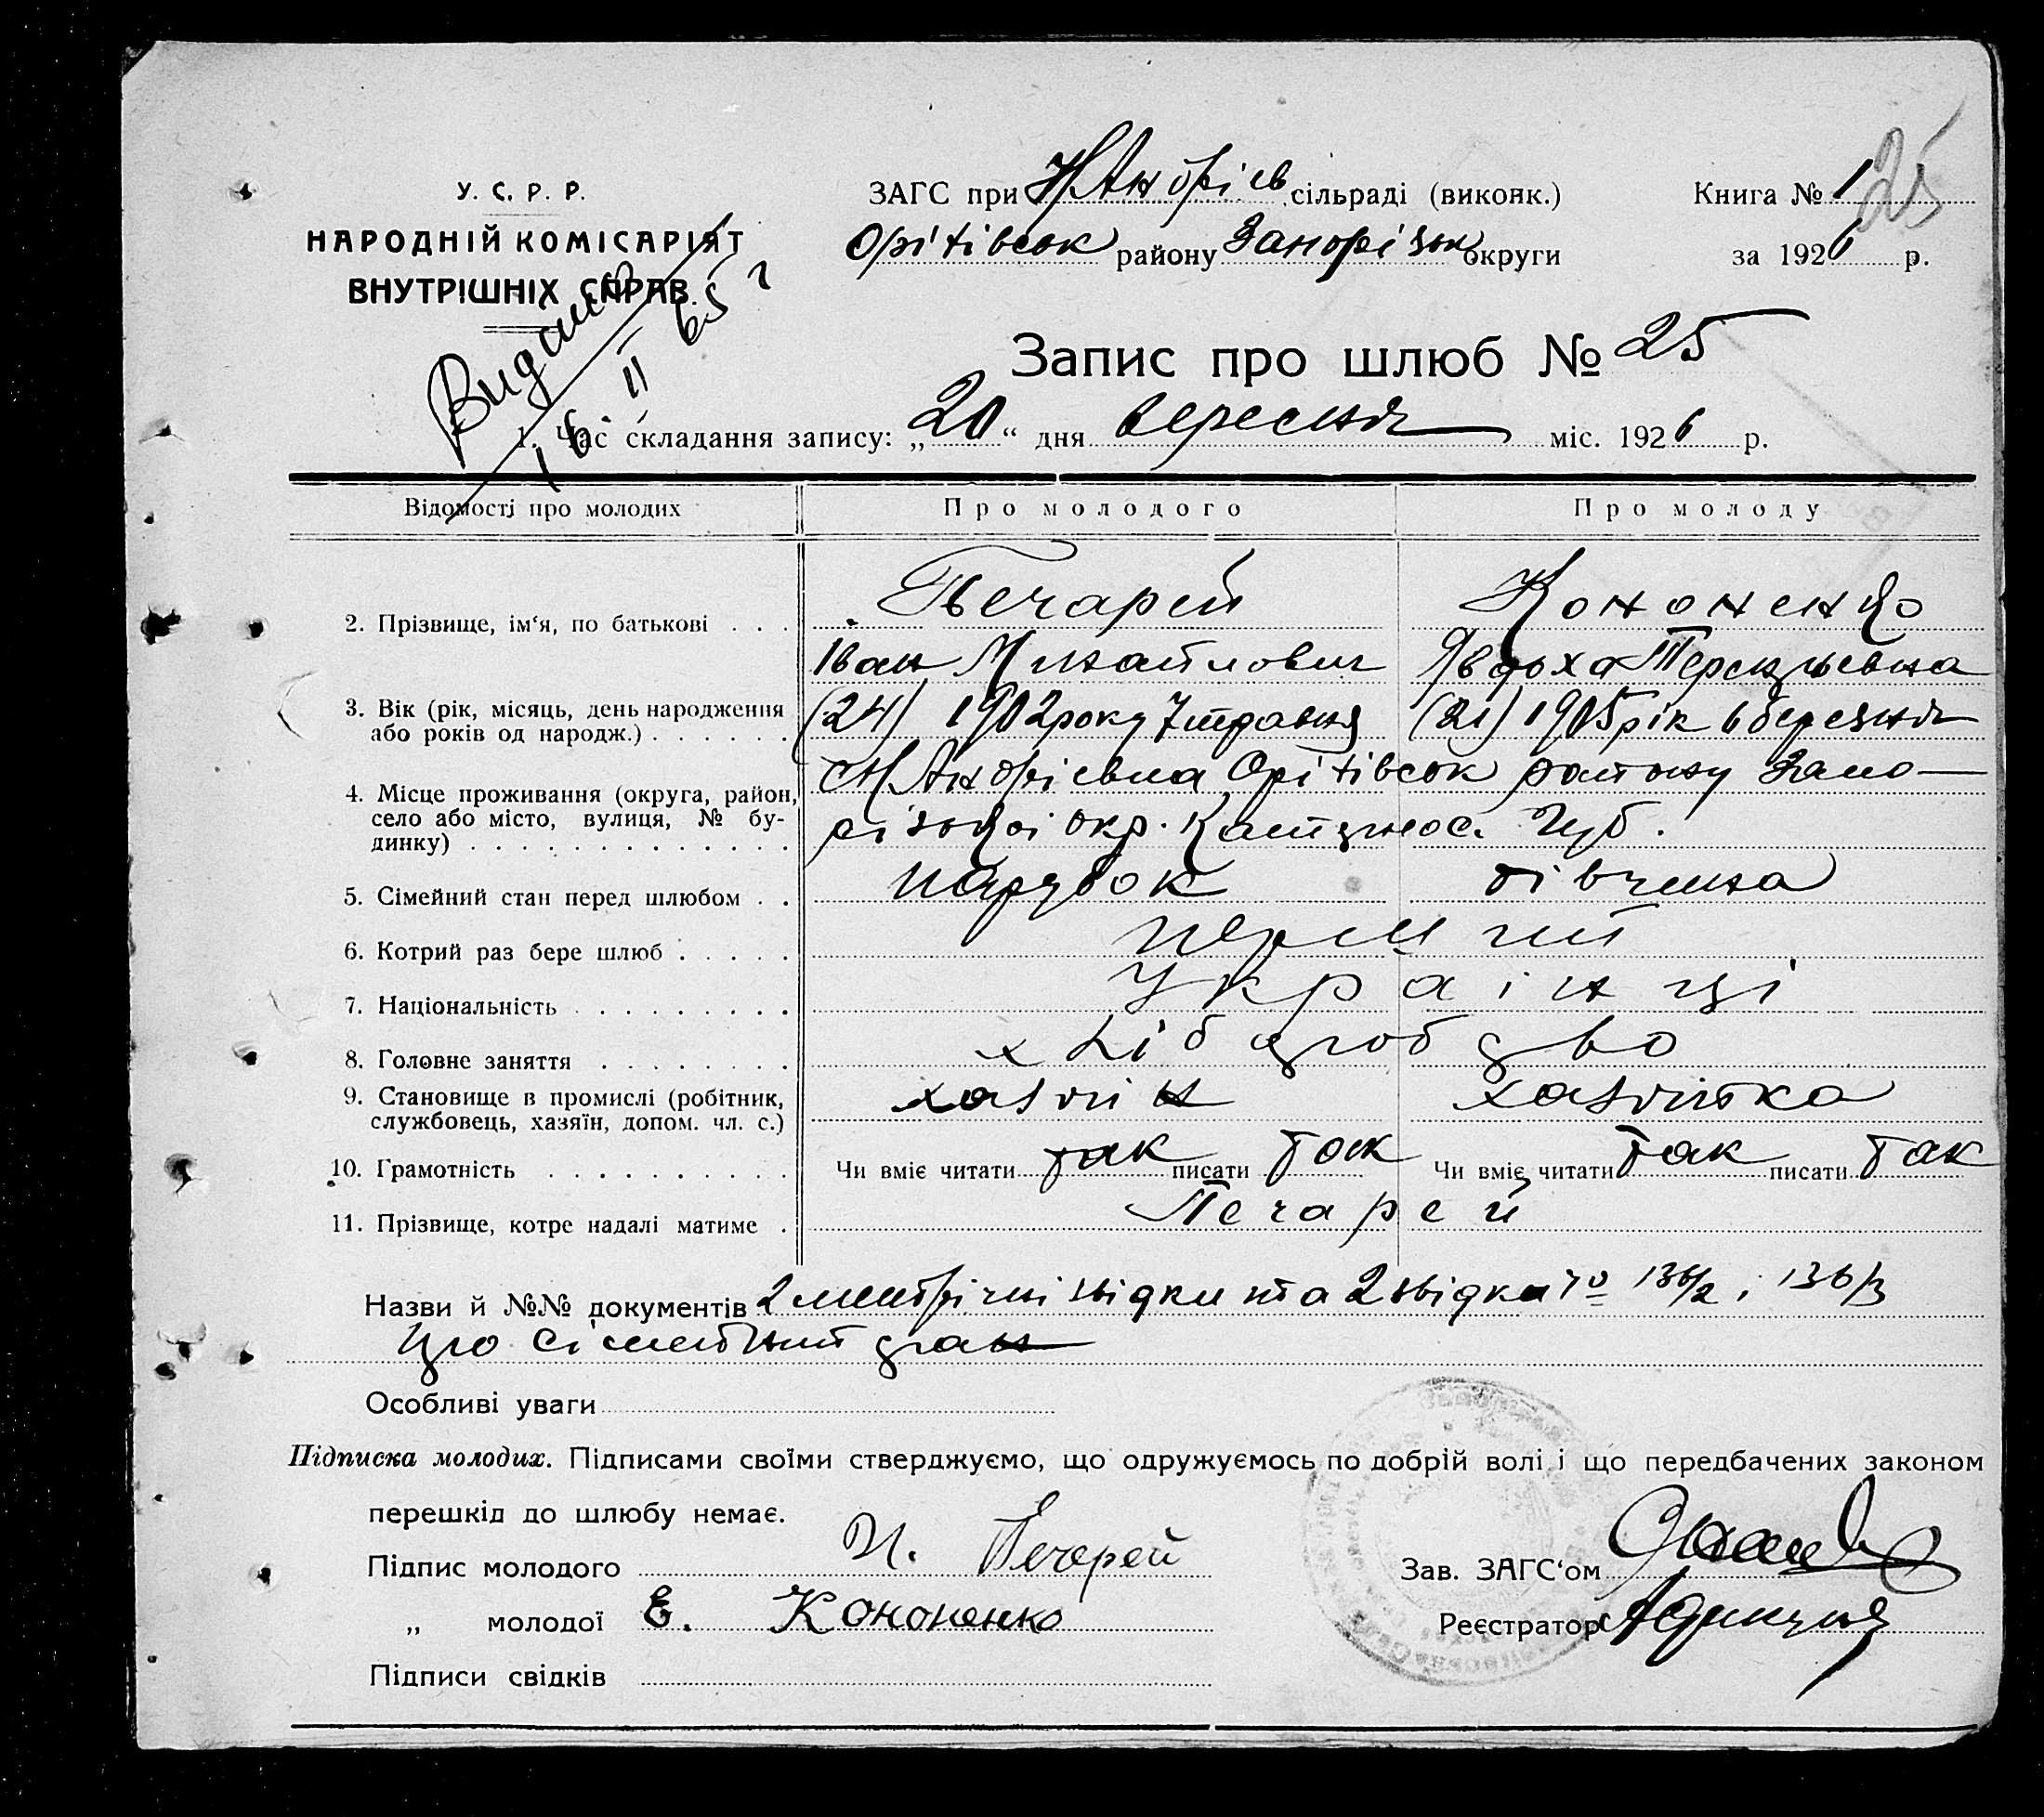 У. С. Р. Р.
НАРОДНІЙ КОМІСАРІЯТ
ВНУТРІШНІХ СПРАВ.
Видано
16. II 65 г
ЗАГС при НАндрієв сільраді (виконк.)
Оріхівськ району Запорізьк округи
Книга № 1
25
за 1926 р.
Запис про шлюб № 25
1. Час складання запису: „20“ дня вересня міс. 1926 р.
Відомості про молодих
Про молодого
Про молоду
2. Прізвище, ім‘я, по батькові . . .
Печарей
Іван Михайлович
Кононенко
Явдоха Терентьевна
3. Вік (рік, місяць, день народження
або років од народж.) . . . . . .
(24) 1902 року 7 травня
(21) 1905 рік 6 березня
4. Місце проживання (округа, район,
село або місто, вулиця, № бу-
динку) . . . . . . . . . . . . . .
Оріхівськ району Запо-
різької окр. Катеринос. Губ.
5. Сімейний стан перед шлюбом . .
парубок
дівчина
6. Котрий раз бере шлюб . . . . .
перший
7. Національність . . . . . . . . .
Українці
8. Головне заняття . . . . . . . .
хліборобство
9. Становище в промислі (робітник,
службовець, хазяїн, допом. чл. с.)
хазяїн
хазяйка
10. Грамотність . . . . . . . . . .
Чи вміє читати так писати так
Чи вміє читати так писати так
11. Прізвище, котре надалі матиме .
Печарей
Назви й №№ документів 2 метричні звідки та 2 звідки № 136/2 і 136/3
про сімейний стан
Особливі уваги
Підписка молодих. Підписами своїми стверджуємо, що одружуємось по добрій волі і що передбачених законом
перешкід до шлюбу немає.
Підпис молодого И. Печерей
„ молодої Е. Кононенко
Підписи свідків
Зав. ЗАГС‘ом
Реєстратор